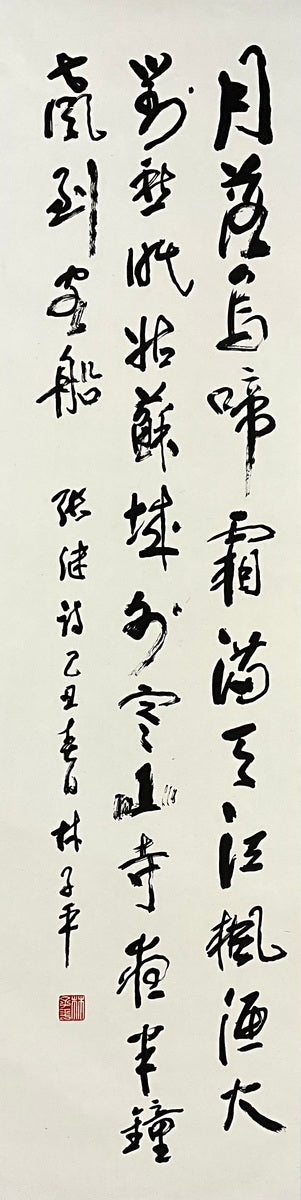 月落烏啼霜滿天江楓漁火
對愁眠姑蘇城外寒山寺夜半鐘
聲到客船 張継詩 己丑春日 林子平